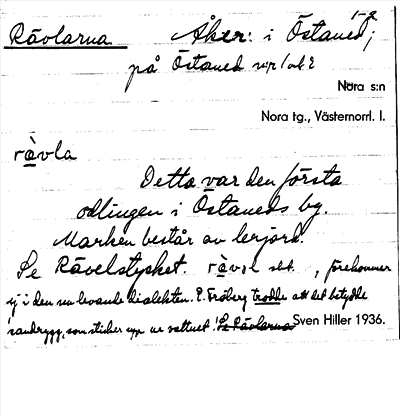 Rävlarna Åker i Östaned 1-2;
på Östaned
Nora s:n
Nora tg., Västernorrl. l.
ràvla
Detta var den första
odlingen i Östaneds by.
Marken består av lerjord.
Se Rävelstycket. , förekommer
ej i den nu levande dialekten. E. Fröberg trodde att det betydde
'sandrygg, som sticker upp ur vattnet'. Se Rävlarna Sven Hiller 1936.